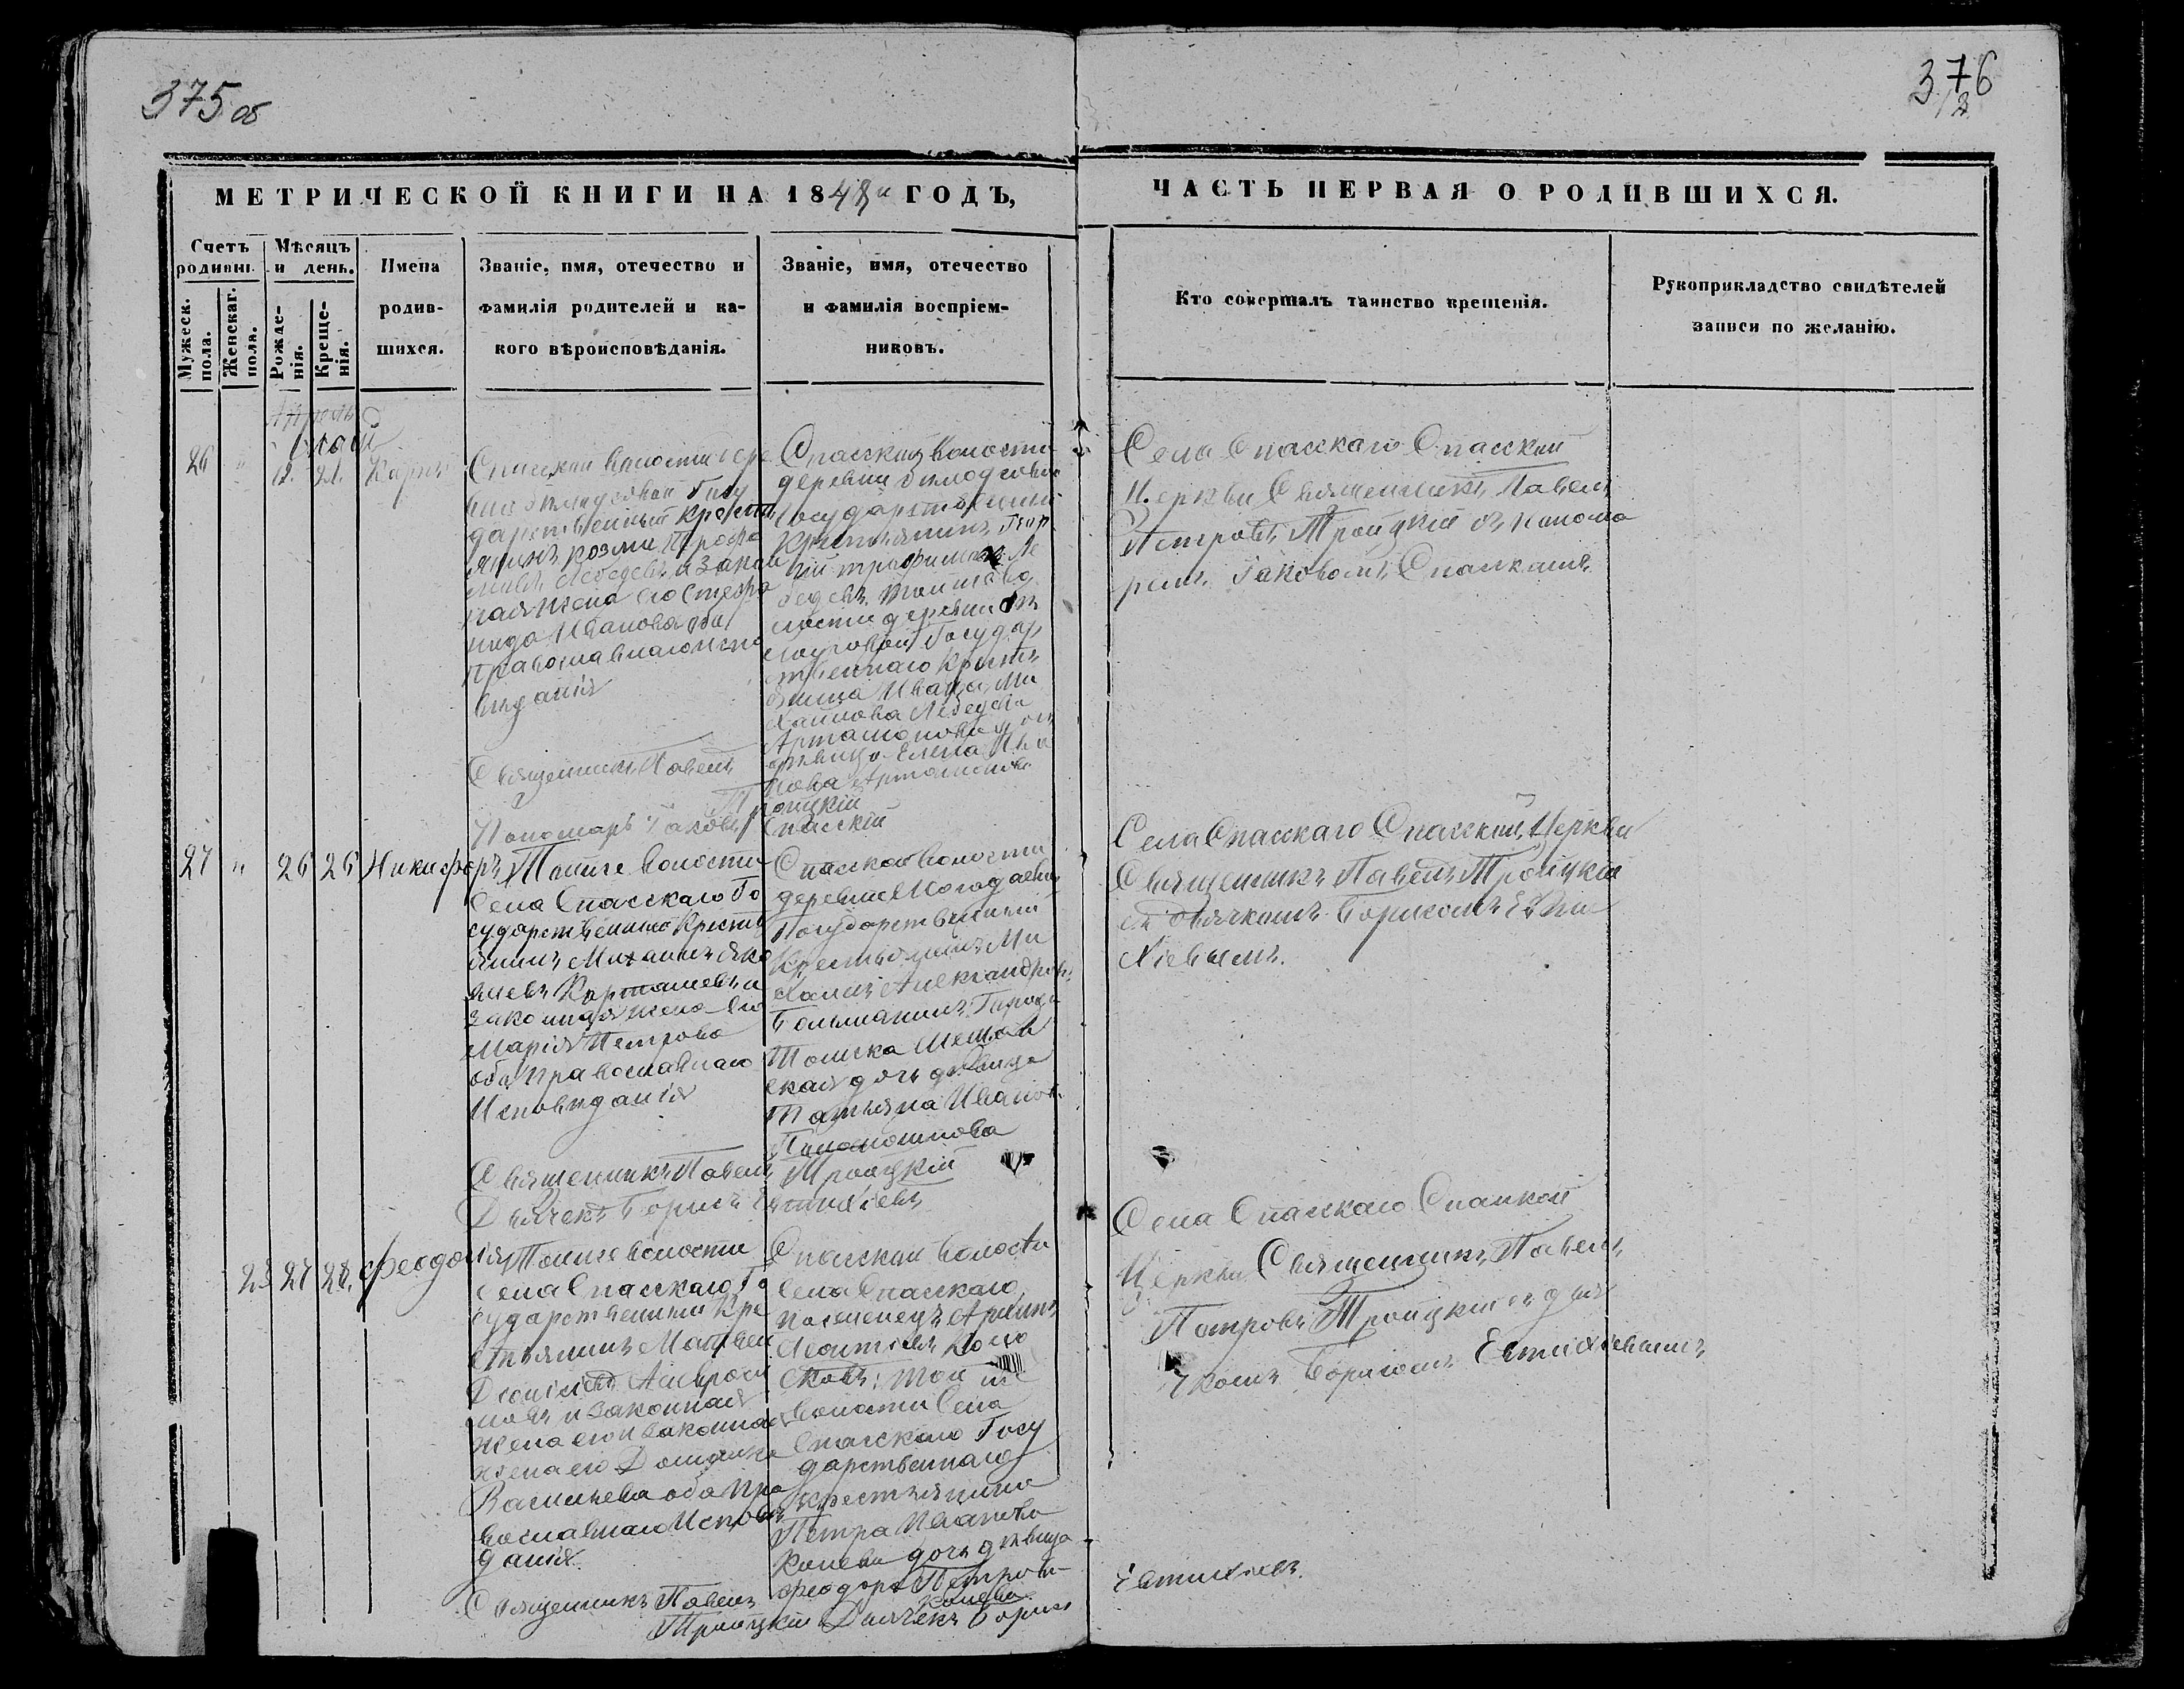 375 об
376
МЕТРИЧЕСКОЙ КНИГИ НА 1848й ГОДЪ,
ЧАСТЬ ПЕРВАЯ О РОДИВШИХСЯ.
Счетъ родивш.
Мужеск. пола.
Женскаг. пола.
Мѣсяцъ и день.
Рожде-
нія.
Креще-
нія.
Имена
родив-
шихся.
Званіе, имя, отечество и
фамилія родителей и ка-
кого вѣроисповѣданія.
Званіе, имя, отечество
и фамилія воспріем-
никовъ.
Кто совершалъ таинство крещенія.
Рукоприкладство свидѣтелей
записи по желанію.
Май
26 " 12. 21. Карпъ
Спасской волости дере
Госу
дарственный Крестья
янинъ Козма Трофи
мовъ Лебедевъ и закон
ная жена его Стефа
нида Иванова оба
Православнаго испо
вѣданія
Священникъ Павелъ
Троицкій
Пономарь Іаковъ Спасскій
Спасской волости
деревни
Государственный
Крестьянинъ
Трофимовъ Ле
бедевъ. Той же во
лости деревни
Государ
ственнаго Кресть
янина Ивана Ми
хайлова
Артамонова дочь
дѣвица Елена Ива
нова Артамонова
Села Спасскаго Спасской
Церкви Священникъ Павелъ
Петровъ Троицкій съ Понома
ремъ Іаковомъ Спасскимъ
27 " 26 26 Никифоръ
Той же волости
Села Спасскаго Го
сударственный Кресть
янинъ Михаилъ Яко
влевъ Карташевъ и
законная жена его
Марія Петрова
оба Православнаго
Исповѣданія
Священникъ Павелъ Троицкій
Дьячекъ Борисъ Евтихіевъ
Спасской волости
деревни Могодаевой
Государственный
Крестьянинъ Ми
хаилъ Александров.
Города
Томска Мещан
ская дочь дѣвица
Татьяна Иванов.
Села Спасскаго Спасской Церкви
Священникъ Павелъ Троицкій
съ дьячкомъ Борисомъ Евти
хіевымъ.
23 27 28. Феодосія
Той же волости
Села Спасскаго Го
сударственный Кре
стьянинъ Матвей
Діонисіевъ Амвроси
мовъ и законная
жена его и законная
жена его Домника
Васильева оба Пра
вославнаго Исповѣ
данія.
Священникъ Павелъ
Троицкій Дьячекъ Борисъ
Евтихіевъ.
Спасской волости
Села Спасскаго
поселенецъ
Леонтіевъ
Той же
волости Села
Спасскаго Госу
дарственнаго
Крестьянина
Петра Иванова
Конева дочь дѣвица
Феодора Петрова
Конева
Села Спасскаго Спасской
Церкви Священникъ Павелъ
Петровъ Троицкій съ дья
чкомъ Борисомъ Евтихіевымъ